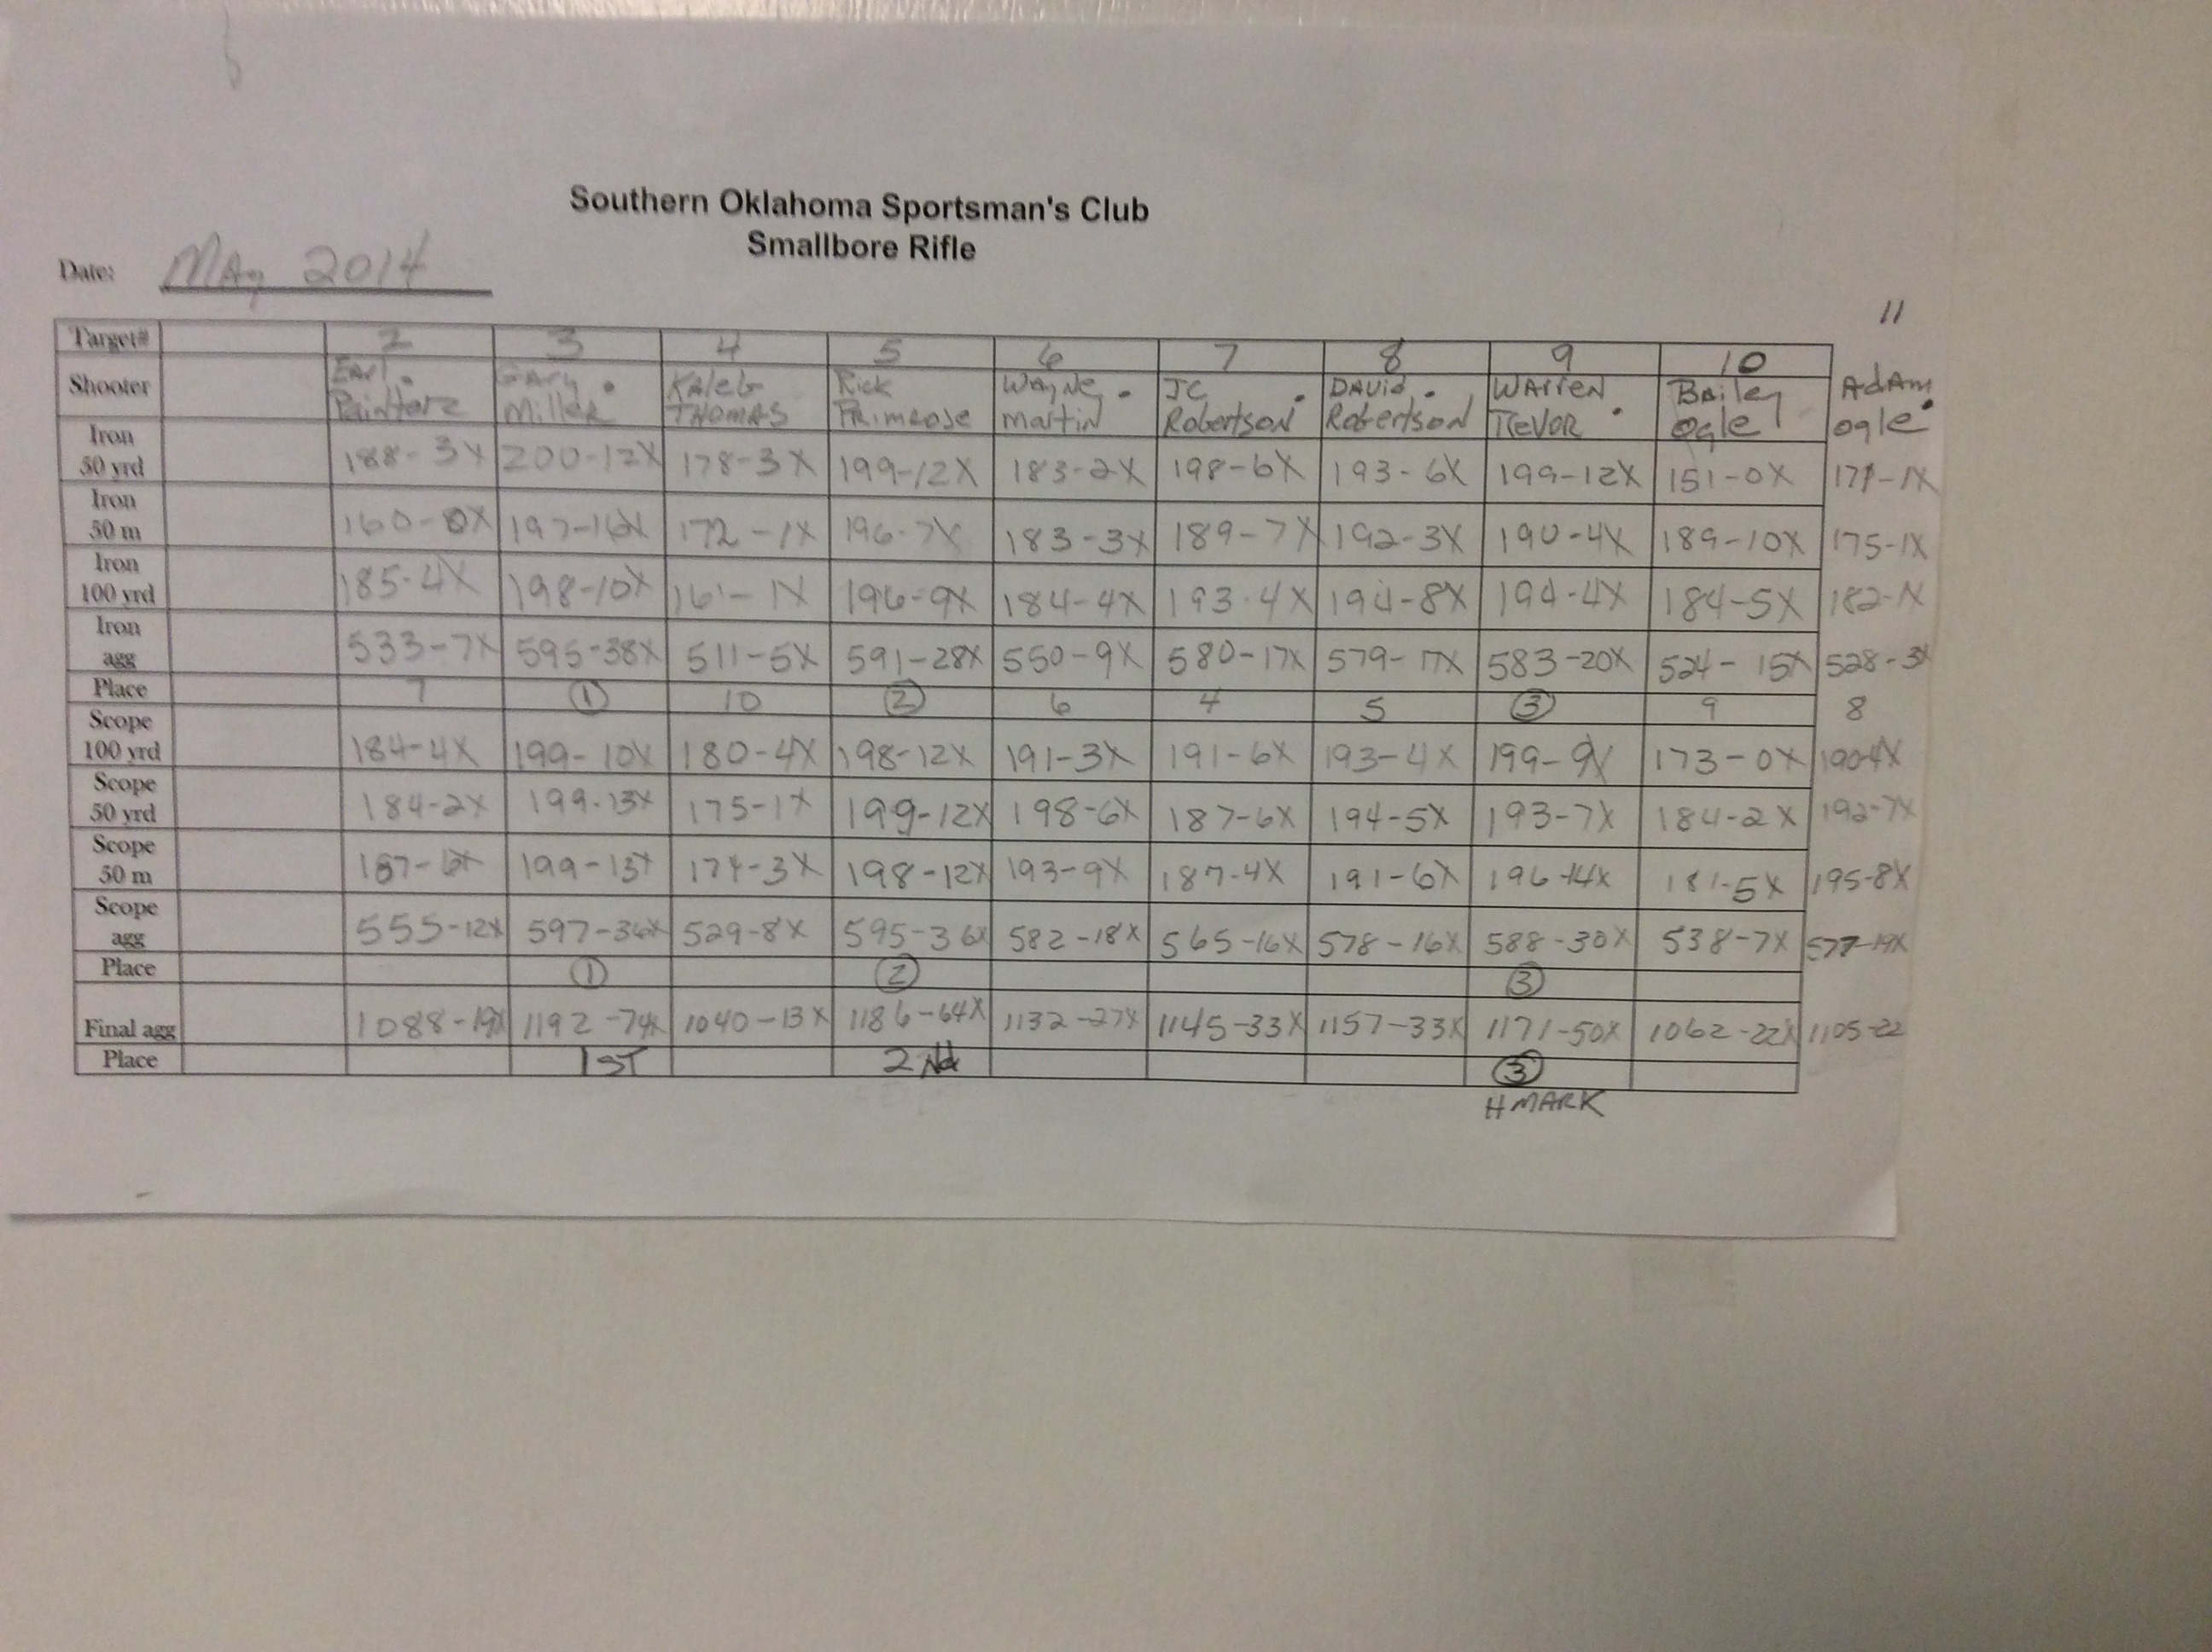 Southern Oklahoma Sportsman's Club
Smallbore Rifle
Date: May 2014
11
Target# 2 3 4 5 6 7 8 9 10
Shooter Earl Gary Kaleb Rick Wayne JC David Warren Bailey Adam
Miller THOMAS Primrose Martin Robertson Robertson Trevor Ogle ogle
Iron
50 yrd 188-3X 200-12X 178-3X 199-12X 183-2X 198-6X 193-6X 199-12X 151-0X 171-1X
Iron
50 m 160-0X 197-16X 172-1X 196-7X 183-3X 189-7X 192-3X 190-4X 189-10X 175-1X
Iron
100 yrd 185-4X 198-10X 161-1X 196-9X 184-4X 193-4X 194-8X 194-4X 184-5X 182-1X
Iron
agg 533-7X 595-38X 511-5X 591-28X 550-9X 580-17X 579-17X 583-20X 524-15X 528-3X
Place 7 1 10 2 6 4 5 3 9 8
Scope
100 yrd 184-4X 199-10X 180-4X 198-12X 191-3X 191-6X 193-4X 199-9X 173-0X 190-4X
Scope
50 yrd 184-2X 199-13X 175-1X 199-12X 198-6X 187-6X 194-5X 193-7X 184-2X 192-7X
Scope
50 m 187-6X 199-13X 174-3X 198-12X 193-9X 187-4X 191-6X 196-14X 181-5X 195-8X
Scope
agg 555-12X 597-36X 529-8X 595-36X 582-18X 565-16X 578-16X 588-30X 538-7X 577-19X
Place 1 2 3
Final agg 1088-19X 1192-74X 1040-13X 1186-64X 1132-27X 1145-33X 1157-33X 1171-50X 1062-22X 1105-22
Place 1ST 2Nd 3
H MARK